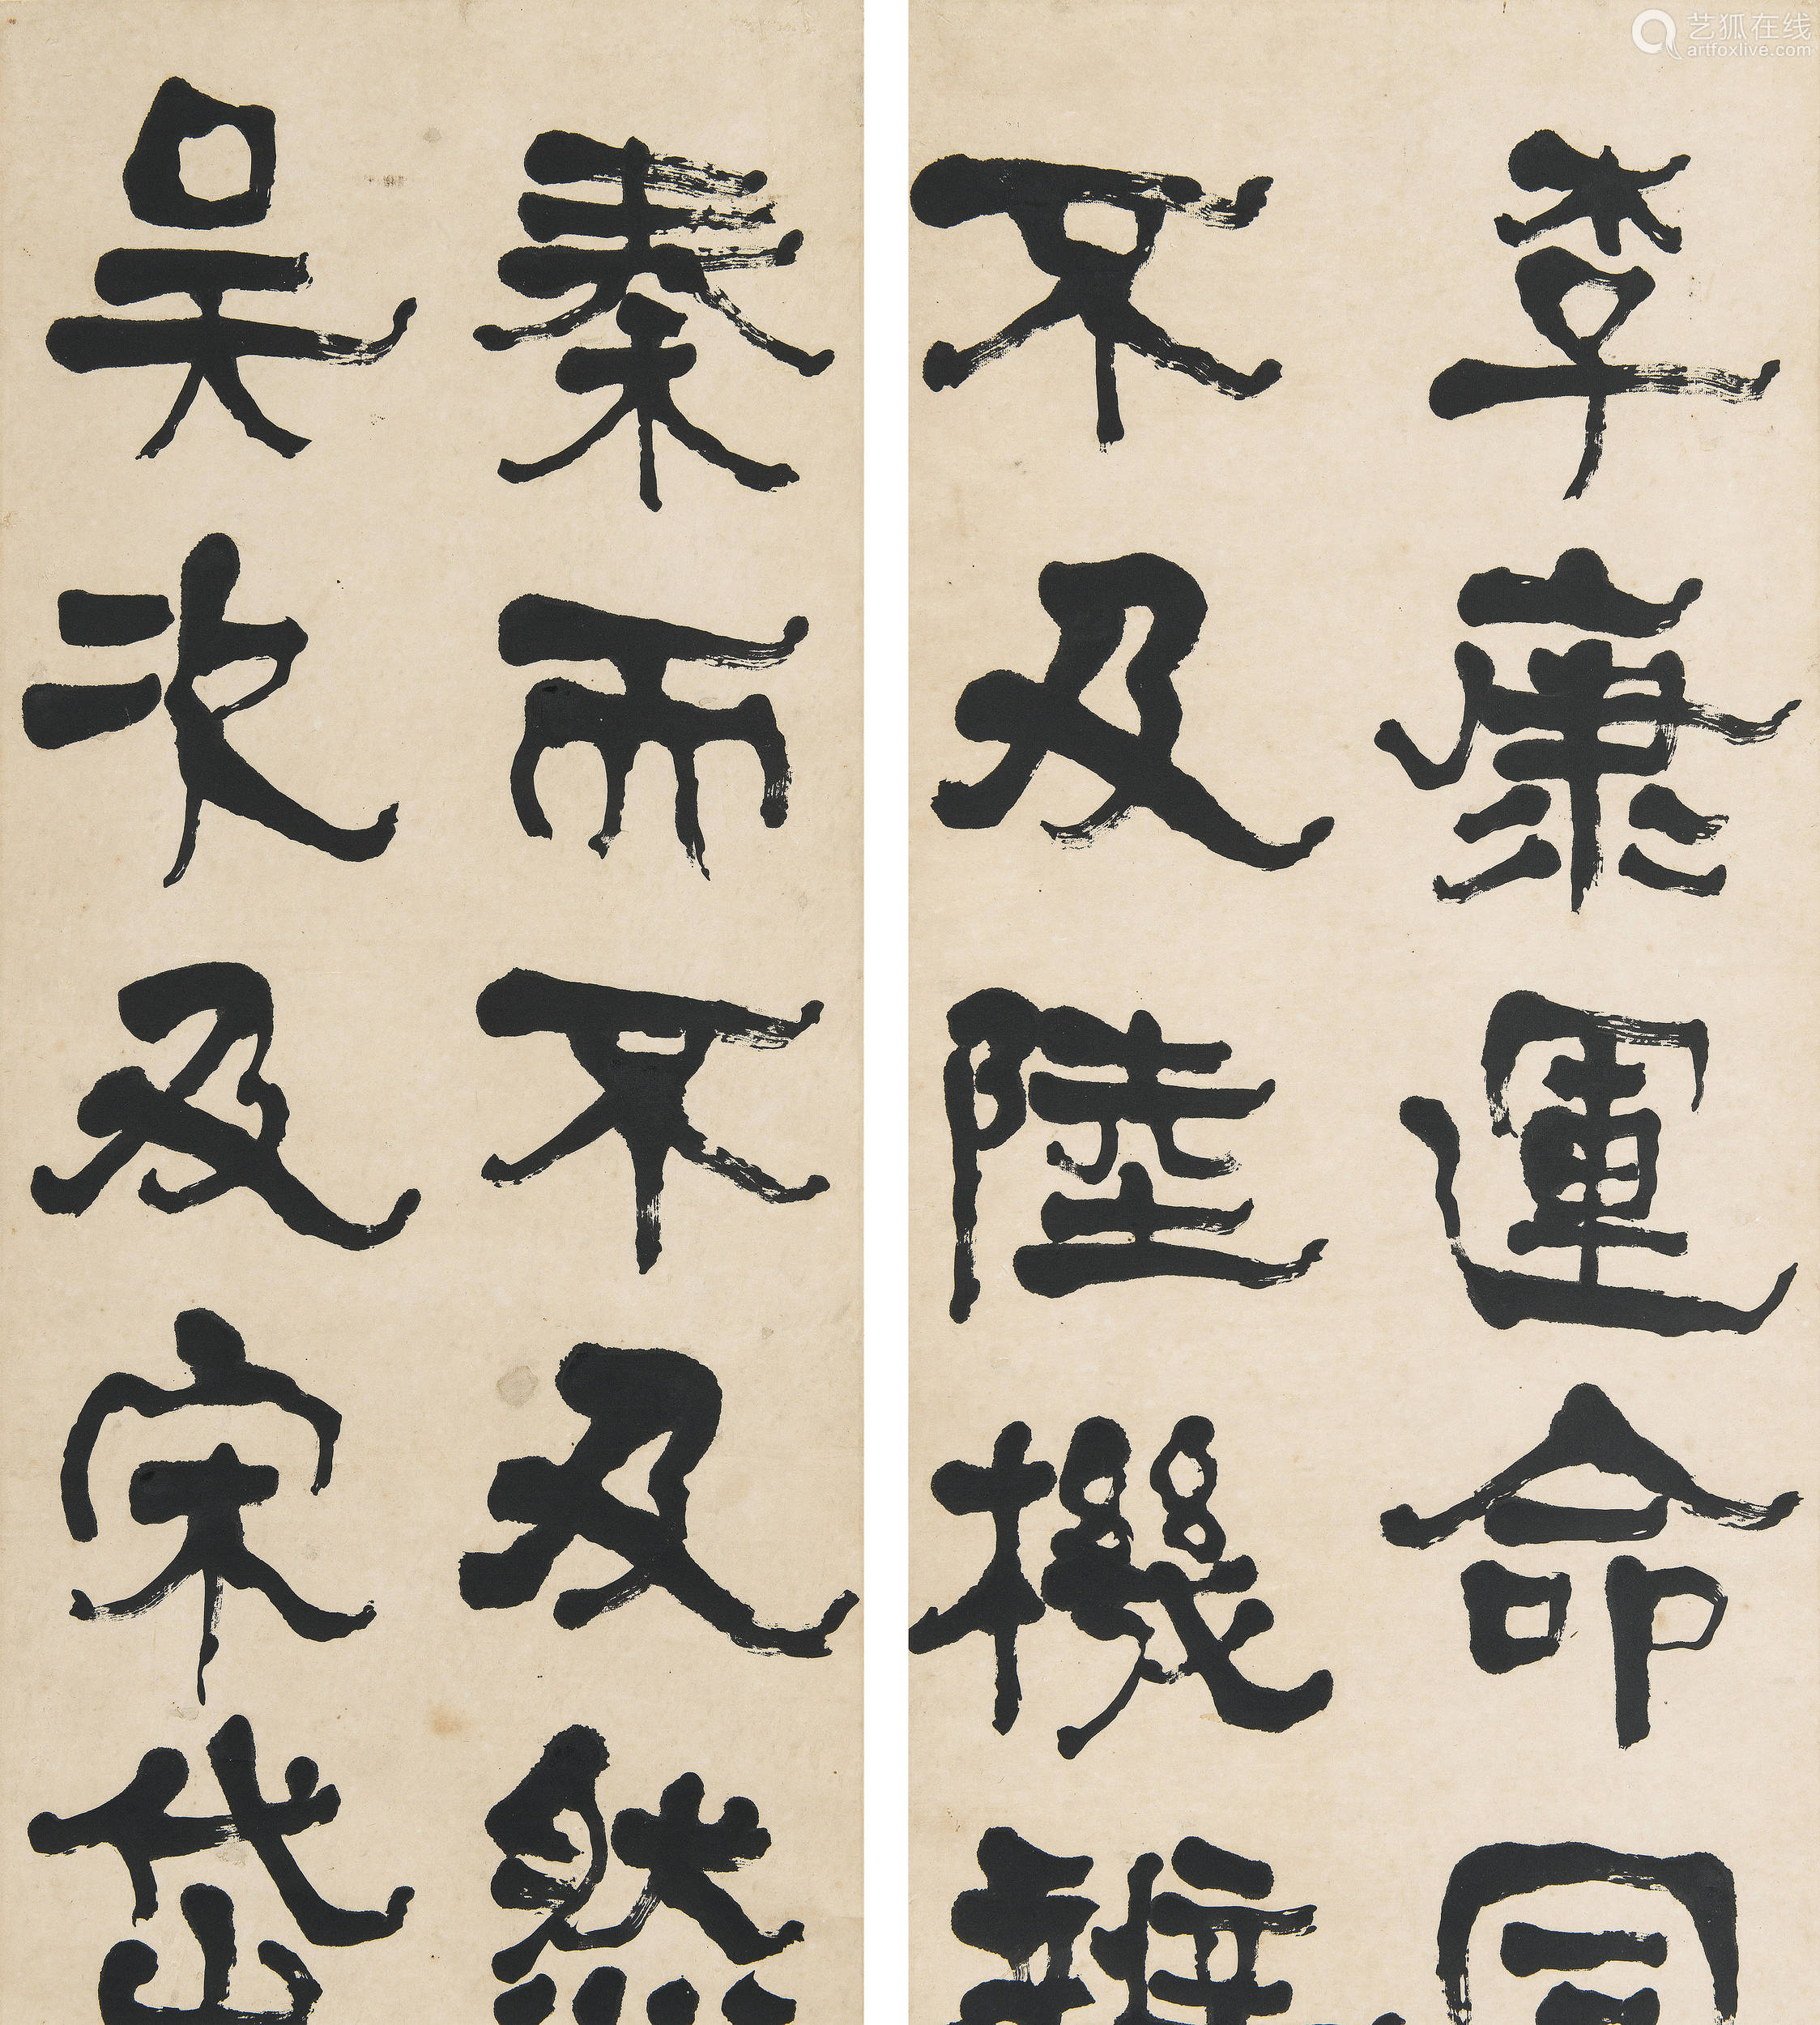 李康運命同
不及陸機辨
秦而不及然
吳次及宋岱
艺狐在线
artfoxlive.com